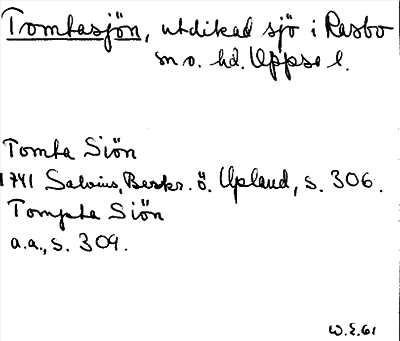 Tomtasjön, utdikad sjö i Rasbo
sn o. hd. Upps. l.
Tomta Siön
1741 Salvius, Beskr. ö. Upland, s. 306.
Tompta Siön
a.a., s. 309.
W.E. 61